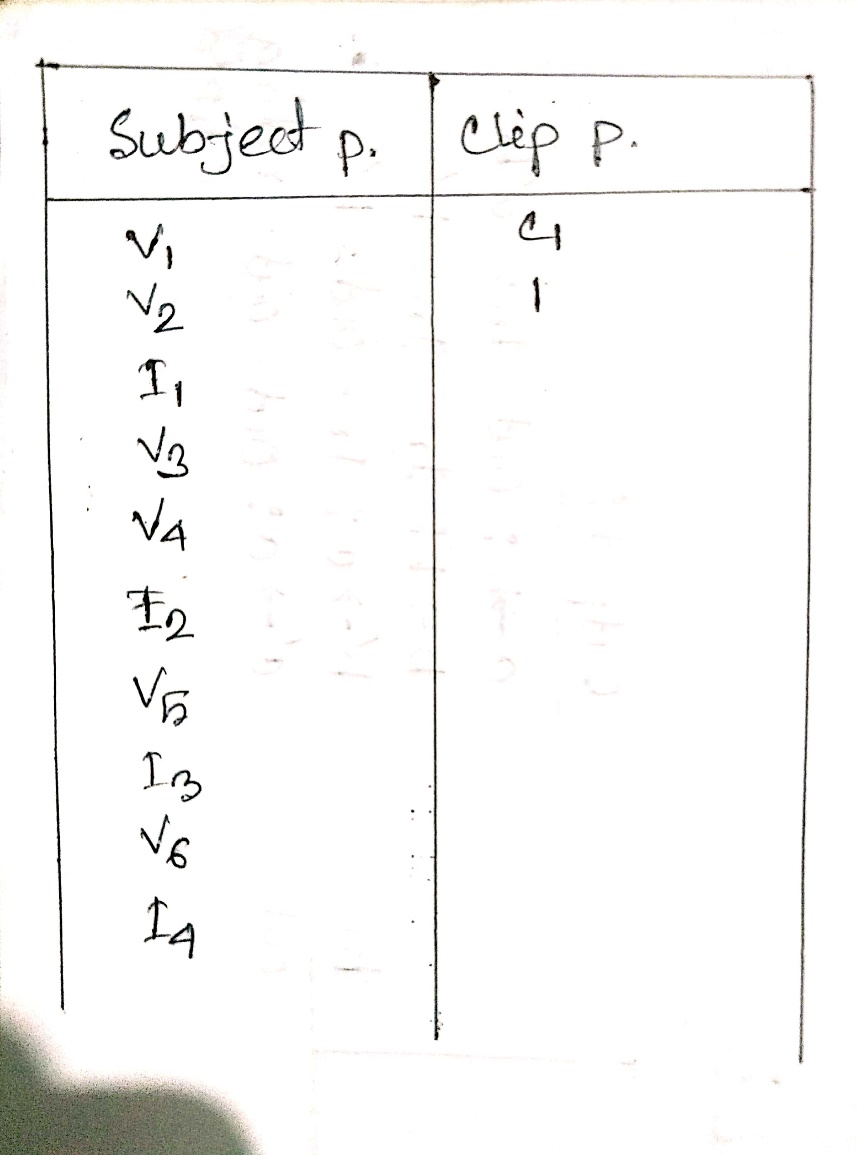 Subject p. Clip p.
V1 C1
V2 1
I1
V3
V4
I2
V5
I3
V6
I4